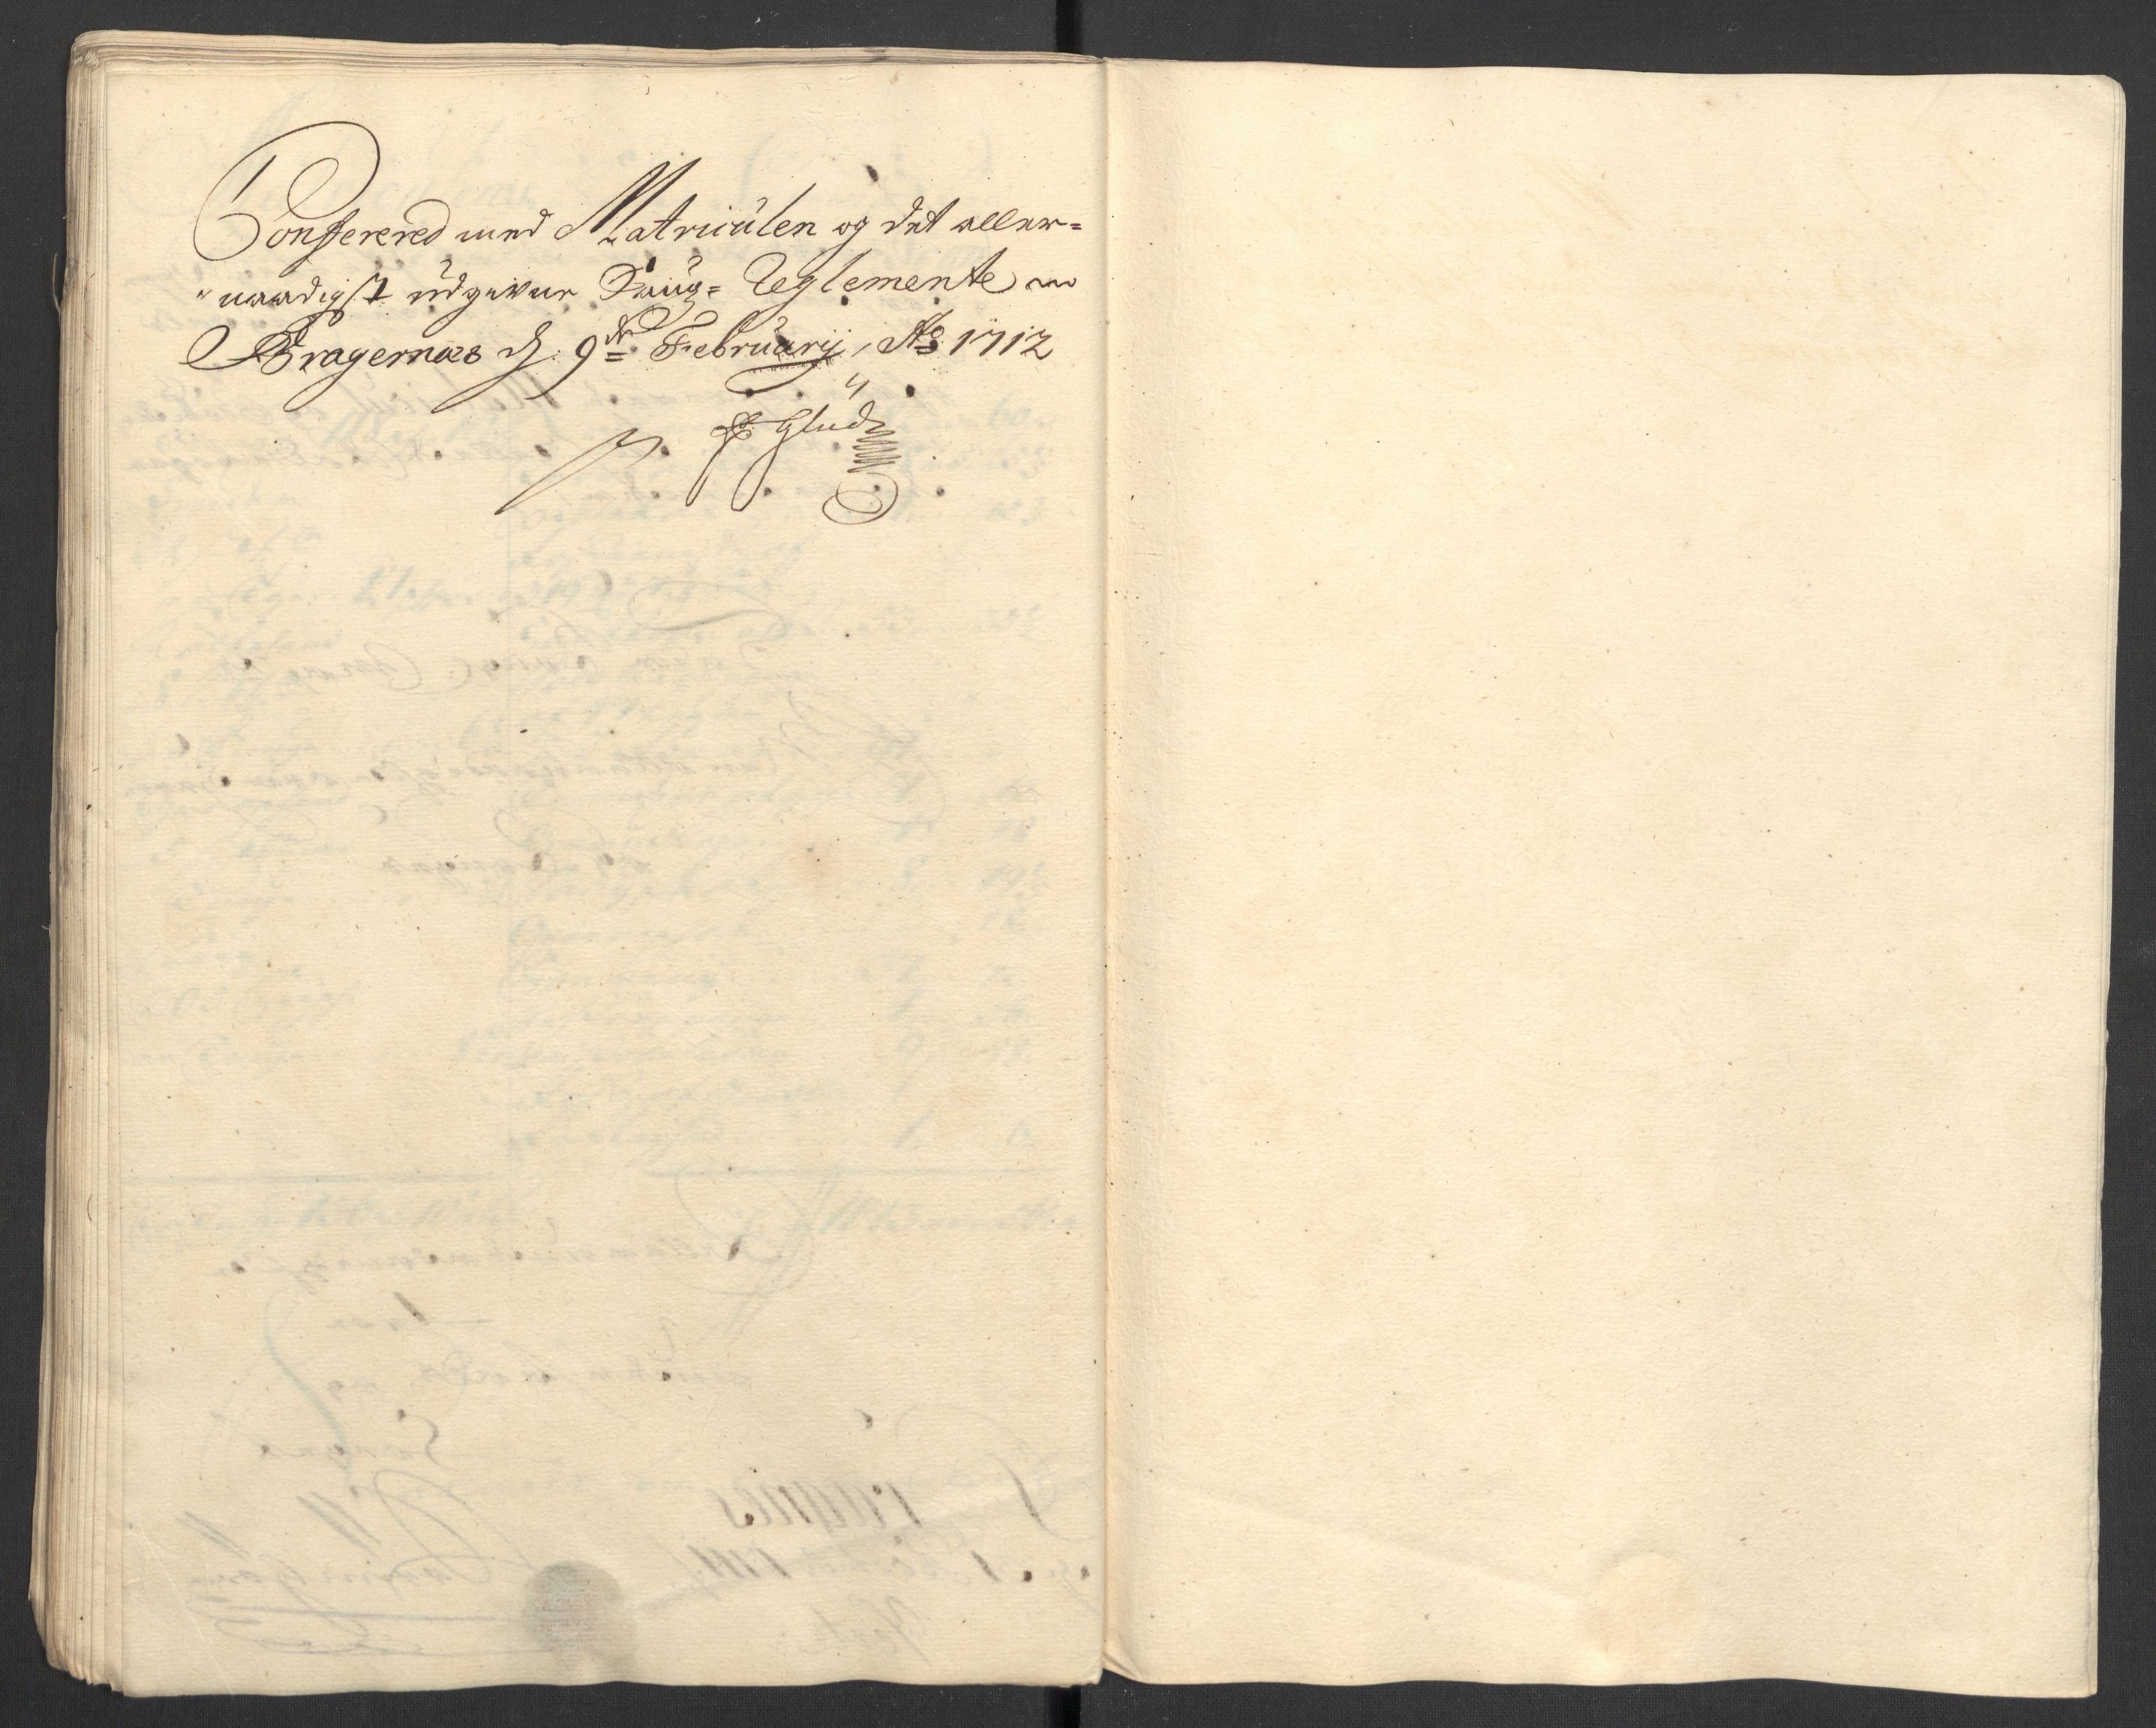 Conferered med Matriculen og det aller-
naadigst udgivne Laug-Reglemente
Bragernæs d: 9de February Ao 1712
Glud